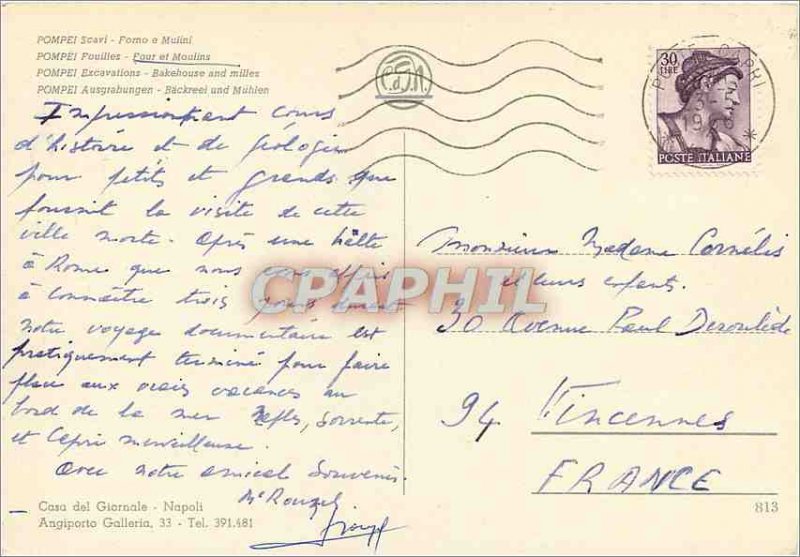 POMPEI Scavi - Forno e Mulini
POMPEI Fouilles - Four et Moulins
POMPEI Excavations - Bakehouse and milles
POMPEI Ausgrabungen - Bäckreei und Mühlen
Impressionnant cours
d'histoire et de géologie
pour petits et grands que
fournit la visite de cette
ville morte. Après une halte
à Rome que nous
à connaître trois jours durant
notre voyage documentaire est
pratiquement terminé pour faire
place aux vraies vacances au
bord de la mer Naples, Sorrente,
et Capri merveilleuse.
Avec notre amical souvenir.
Casa del Giornale - Napoli
Angiporto Galleria, 33 - Tel. 391.481
30
LIRE
POSTE ITALIANE
CAPRI
Monsieur Madame Cornélis
et leurs enfants.
30 Avenue Paul Déroulède
94 Vincennes
FRANCE
813
CPAPHIL